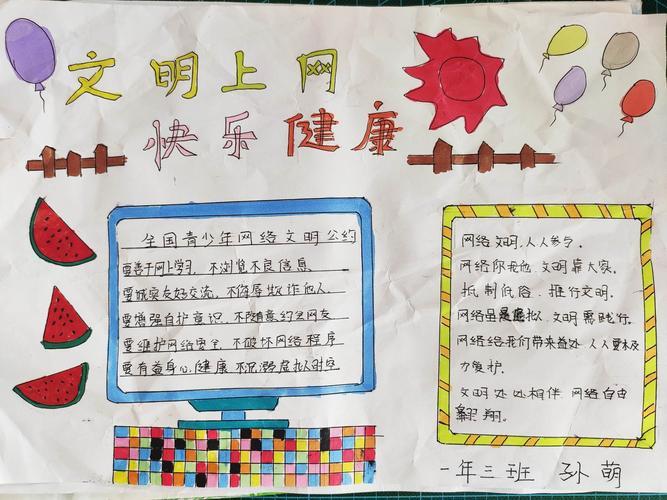 文明上网
快乐健康
全国青少年网络文明公约
要善于网上学习，不浏览不良信息
要诚实友好交流，不侮辱欺诈他人
要增强自护意识，不随意约会网友
要维护网络安全，不破坏网络程序
要有益身心健康，不沉溺虚拟时空
网络文明，人人参与。
网络你我他，文明靠大家。
抵制低俗，推行文明。
网络是虚拟，文明需践行。
网络给我们带来益处，人人要
力爱护.
文明处处相伴，网络自由
翱翔.
一年三班 孙萌